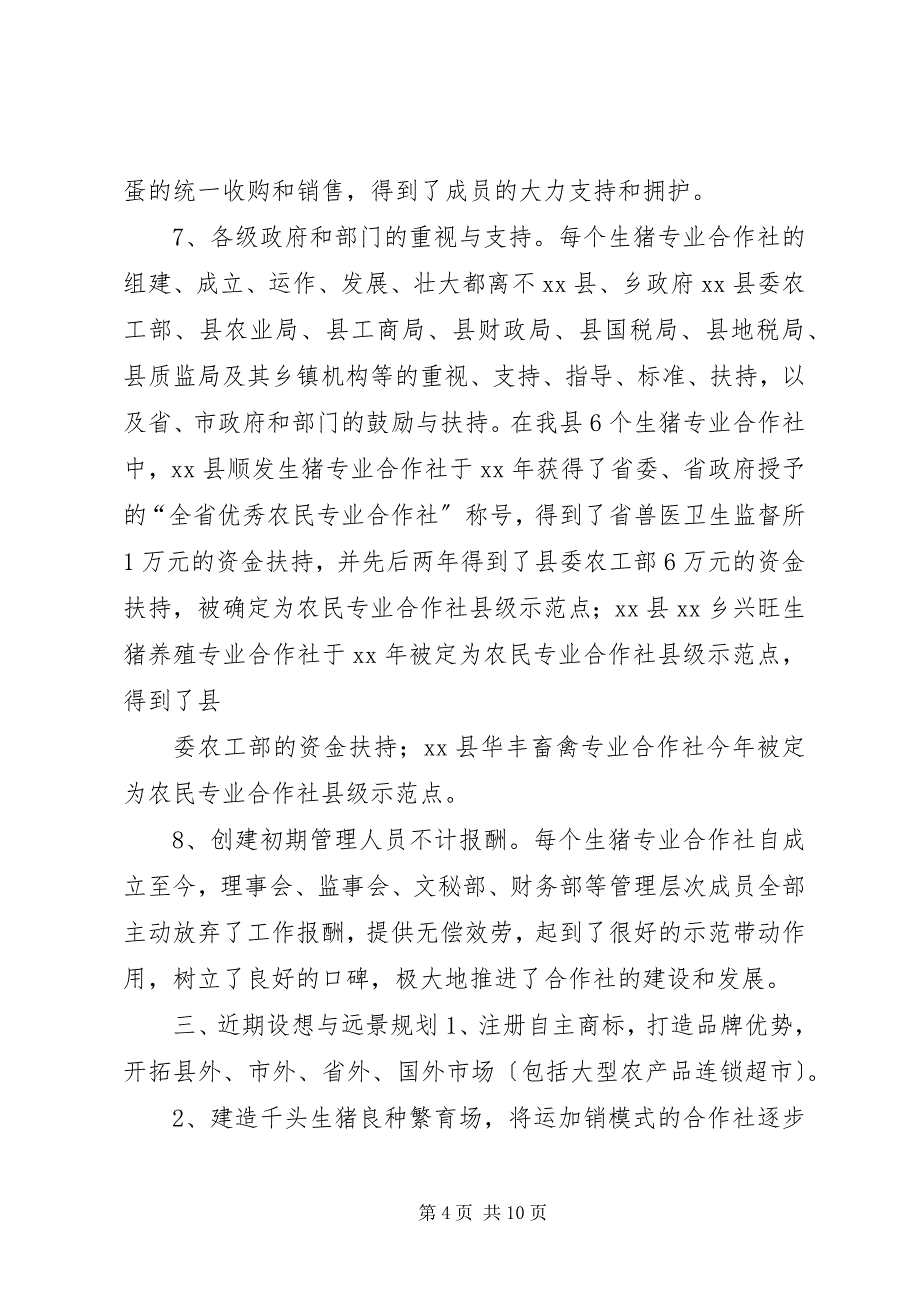 蛋的统一收购和销售，得到了成员的大力支持和拥护。
7、各级政府和部门的重视与支持。每个生猪专业合作社的
组建、成立、运作、发展、壮大都离不 xx 县、乡政府 xx 县委农
工部、县农业局、县工商局、县财政局、县国税局、县地税局、
县质监局及其乡镇机构等的重视、支持、指导、标准、扶持，以
及省、市政府和部门的鼓励与扶持。在我县 6 个生猪专业合作社
中，xx 县顺发生猪专业合作社于 xx 年获得了省委、省政府授予
的“全省优秀农民专业合作社〞称号，得到了省兽医卫生监督所
1 万元的资金扶持，并先后两年得到了县委农工部 6 万元的资金
扶持，被确定为农民专业合作社县级示范点；xx 县 xx 乡兴旺生
猪养殖专业合作社于 xx 年被定为农民专业合作社县级示范点，
得到了县
委农工部的资金扶持；xx 县华丰畜禽专业合作社今年被定
为农民专业合作社县级示范点。
8、创建初期管理人员不计报酬。每个生猪专业合作社自成
立至今，理事会、监事会、文秘部、财务部等管理层次成员全部
主动放弃了工作报酬，提供无偿效劳，起到了很好的示范带动作
用，树立了良好的口碑，极大地推进了合作社的建设和发展。
三、近期设想与远景规划 1、注册自主商标，打造品牌优势，
开拓县外、市外、省外、国外市场〔包括大型农产品连锁超市〕。
2、建造千头生猪良种繁育场，将运加销模式的合作社逐步
第 4 页 共 10 页